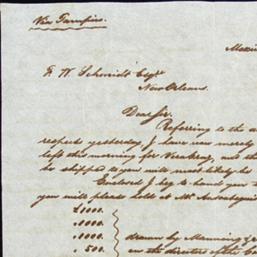 Via Tampico.
Mexi
F. W. Schmidt Esqr.
New Orleans.
Dear Sir,
Referring to the a
respects yesterday I have now merely
left this morning for Veracruz, and th
be shipped to you will most likely be
Enclosed I beg to hand you
you will please hold at Mr.
£1000.
.1000.
.1000.
. 500.
drawn by Manning &
on the directors of the